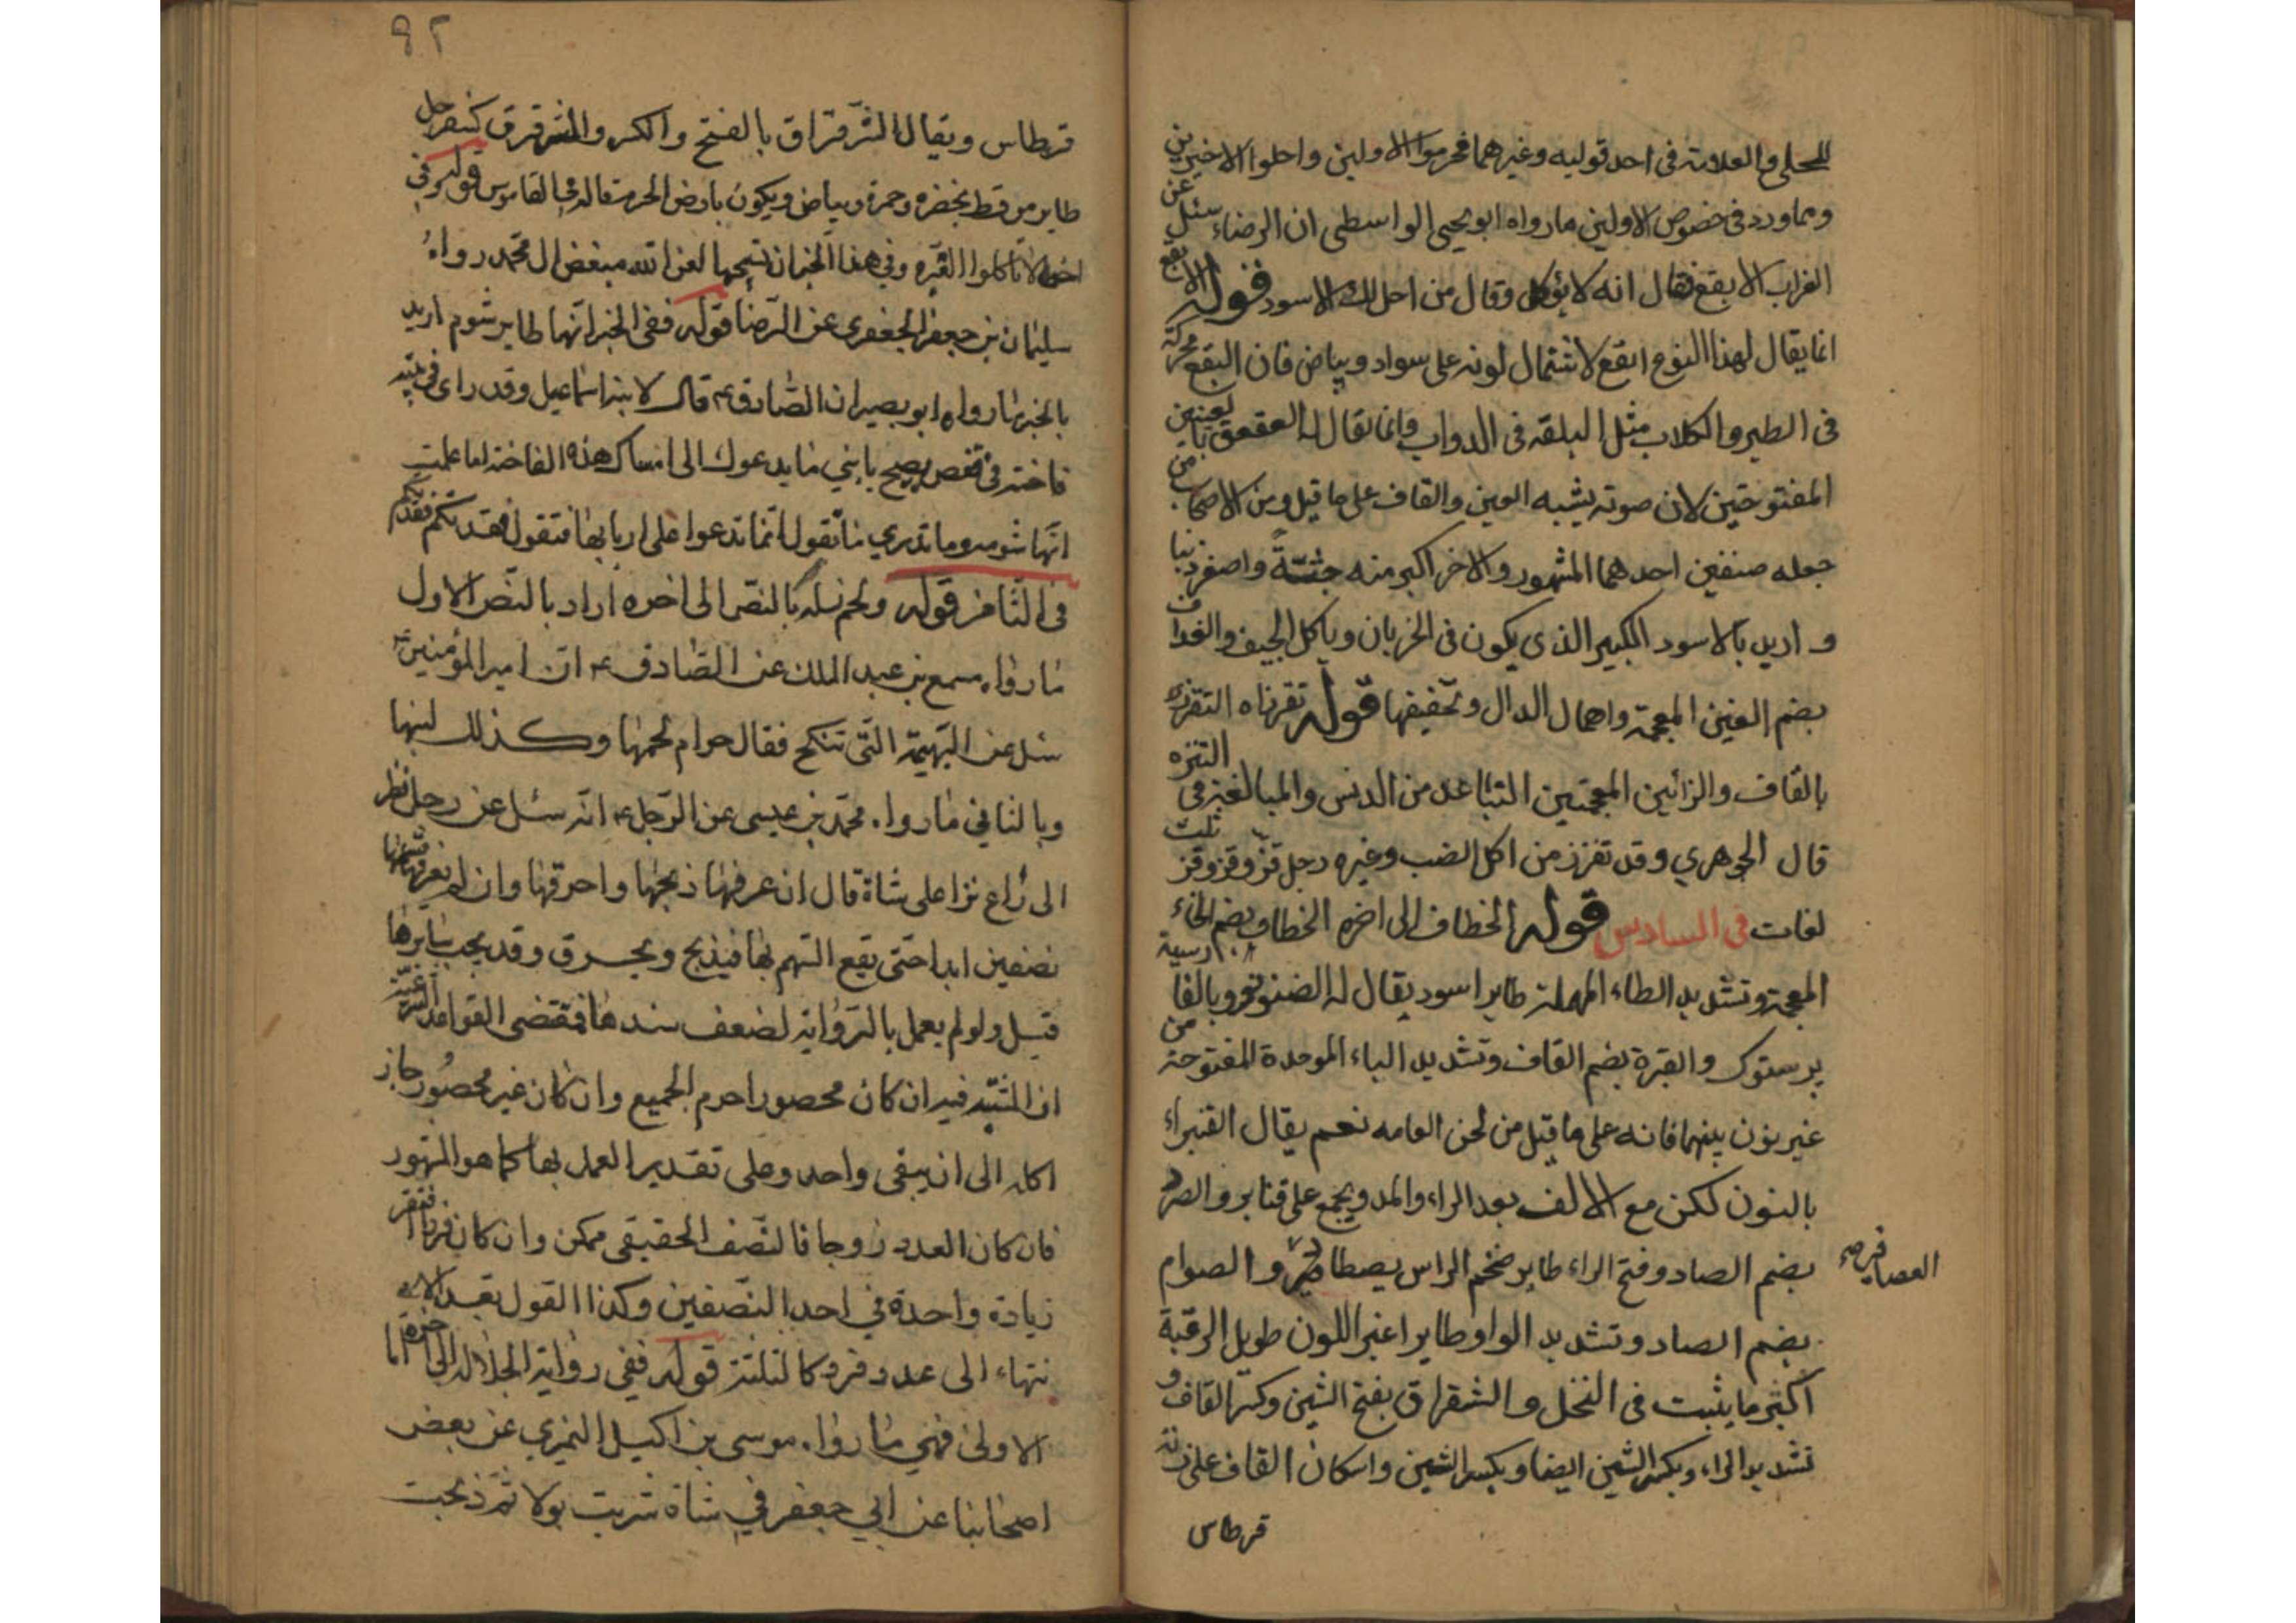 للمحلي والعلامة في احد قوليه وغيرهما فحرموا الاولين واحلوا الاخيرين
ومما ورد في خصوص الاولين ما رواه ابو يحيى الواسطي ان الرضاء سئل عن
الغراب الابقع فقال انه لا يؤكل وقال من احل لك الاسود قوله الابقع
انما يقال لهذا النوع ابقع لاشتمال لونه على سواد وبياض فان البقع محركة
في الطير والكلاب مثل البلقة في الدواب وانما يقال له العقعق بالعينين
المفتوحتين لان صوته يشبه العين والقاف على ما قيل ومن الاصحاب من
جعله صنفين احدهما المشهور والاخر اكبر منه جثتةً واصغر ذنبا
و اريد بالاسود الكبير الذي يكون في الخربان وياكل الجيف والغداف
بضم الغين المعجمة واهمال الدال وتخفيفها قوله تقززاه التقزز
بالقاف والزائين المعجمتين التباعد من الدنس والمبالغة في التنزه
قال الجوهري وقد تقزز من اكل الضب وغيره رجل قز وقز وقز ثلث
لغات في السادس قوله الخطاف الى اخره الخطاف بضم الخاء
المعجمة وتشديد الطاء المهملة طاير اسود يقال له الضنونو وبالفارسية
پرستوك والقبرة بضم القاف وتشديد الباء الموحدة المفتوحة من
غير نون بينهما فانه على ما قيل من لحن العامه نعم يقال القنبراء
بالنون لكن مع الالف بعد الراء والمد ويجمع على قنابر والصرد
بضم الصاد وفتح الراء طاير ضخم الراس يصطاد والصوام
العصافير صح
بضم الصاد وتشديد الواو طاير اغبر اللون طويل الرقبة
اكثر ما يثبت في النخل والشقراق بفتح الشين وكسر القاف و
تشديد الراء وبكسر الشين ايضا وبكسر الشين واسكان القاف على زنة
قرطاس
٩٢
قرطاس ويقال الشرقراق بالفتح والكسر والشرقرق كسفرجل
طاير مرقط بخضرة وحمرة وبياض ويكون بارض الحرم قاله في القاموس قوله وفي
اخر لا تاكلوا القبره وفي هذا الخبر ان تسبيحها لعن الله مبغض ال محمد رواه
سليمان بن جعفر الجعفري عن الرضا قوله ففي الخبر انها طاير شوم اريد
بالخبر ما رواه ابو بصير ان الصادق ع قال لابنه اسماعيل وقد راى في بيته
فاخته في قفص يصيح يا بني ما يدعوك الى امساك هذه الفاخته اما علمت
انها شومه وما تدري ما تقول انما تدعوا على اربابها فتقول فقدتكم فقدتكم
في الثامن قوله ولحم نسله بالنص الى اخره اراد بالنص الاول
ما رواه مسمع بن عبد الملك عن الصادق ع ان امير المؤمنين ع
سئل عن البهيمة التي تنكح فقال حرام لحمها وكذلك لبنها
وبالثاني ما رواه محمد بن عيسى عن الرجل ع انه سئل عن رجل نظر
الى راع نزا على شاة قال ان عرفها ذبحها واحرقها وان لم يعرفها قسمها
نصفين ابدا حتى يقع السهم بها فيذبح ويحرق وقد يجب سايرها
قيل ولو لم يعمل بالرواية لضعف سندها فمقتضى القواعد الشرعية
ان المشتبه فيه ان كان محصورا حرم الجميع وان كان غير محصور جاز
اكله الى ان يبقى واحد وعلى تقدير العمل بها كما هو المشهور
فان كان العدد زوجا فالنصف الحقيقي ممكن وان كان فردا اغتفر
زيادة واحدة في احد النصفين وكذا القول بعد الا
نتهاء الى عدد فرد كالثلثة قوله ففي رواية الجلال الى اخره اما
الاولى فهي ما رواه موسى بن اكيل النميري عن بعض
اصحابنا عن ابي جعفر في شاة شربت بولا ثم ذبحت